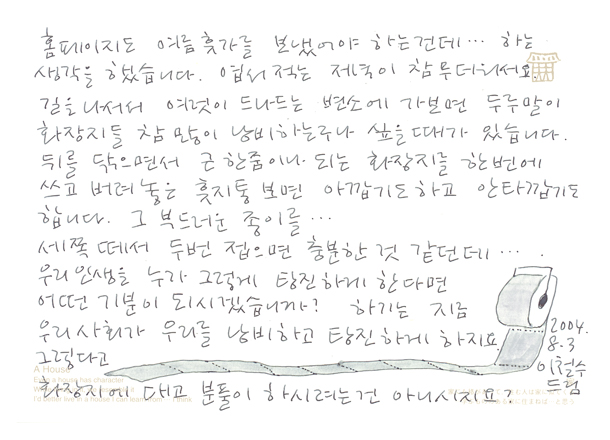 홈페이지도 여름 휴가를 보냈어야 하는건데… 하는
생각을 했습니다. 엽서 적는 제목이 참 무더워서요.
길을 나서서 여럿이 드나드는 변소에 가보면 두루말이
화장지들 참 많이 낭비하는구나 싶을때가 있습니다.
뒤를 닦으면서 근 한줌이나 되는 화장지를 한번에
쓰고 버려 놓은 휴지통 보면 아깝기도 하고 안타깝기도
합니다. 그 부드러운 종이를…
세쪽 떼서 두번 접으면 충분한 것 같던데….
우리인생을 누가 그렇게 탕진하게 한다면
어떤 기분이 되시겠습니까? 하기는 지금
우리 사회가 우리를 낭비하고 탕진하게 하지요
그렇다고
화장지에 대고 분풀이 하시려는건 아니시지요?
2004.
8.3
이철수
드림
A House